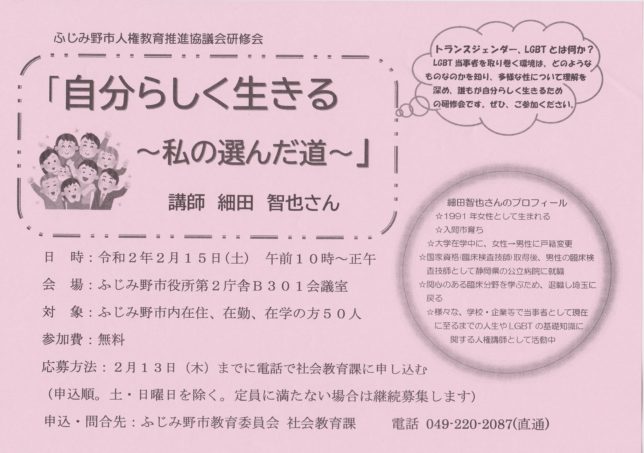 ふじみ野市人権教育推進協議会研修会
「自分らしく生きる
～私の選んだ道～」
講師　細田　智也さん
トランスジェンダー、LGBTとは何か？
LGBT当事者を取り巻く環境は、どのような
ものなのかを知り、多様な性について理解を
深め、誰もが自分らしく生きるため
の研修会です。ぜひ、ご参加ください。
日　時：令和２年２月１５日(土)　午前１０時～正午
会　場：ふじみ野市役所第２庁舎Ｂ３０１会議室
対　象：ふじみ野市内在住、在勤、在学の方５０人
参加費：無料
応募方法：２月１３日（木）までに電話で社会教育課に申し込む
（申込順。土・日曜日を除く。定員に満たない場合は継続募集します）
申込・問合先：ふじみ野市教育委員会 社会教育課　　電話 049-220-2087(直通)
細田智也さんのプロフィール
☆1991年女性として生まれる
☆入間市育ち
☆大学在学中に、女性→男性に戸籍変更
☆国家資格(臨床検査技師)取得後、男性の臨床検
査技師として静岡県の公立病院に就職
☆関心のある臨床分野を学ぶため、退職し埼玉に
戻る
☆様々な、学校・企業等で当事者として現在
に至るまでの人生やLGBTの基礎知識に
関する人権講師として活動中